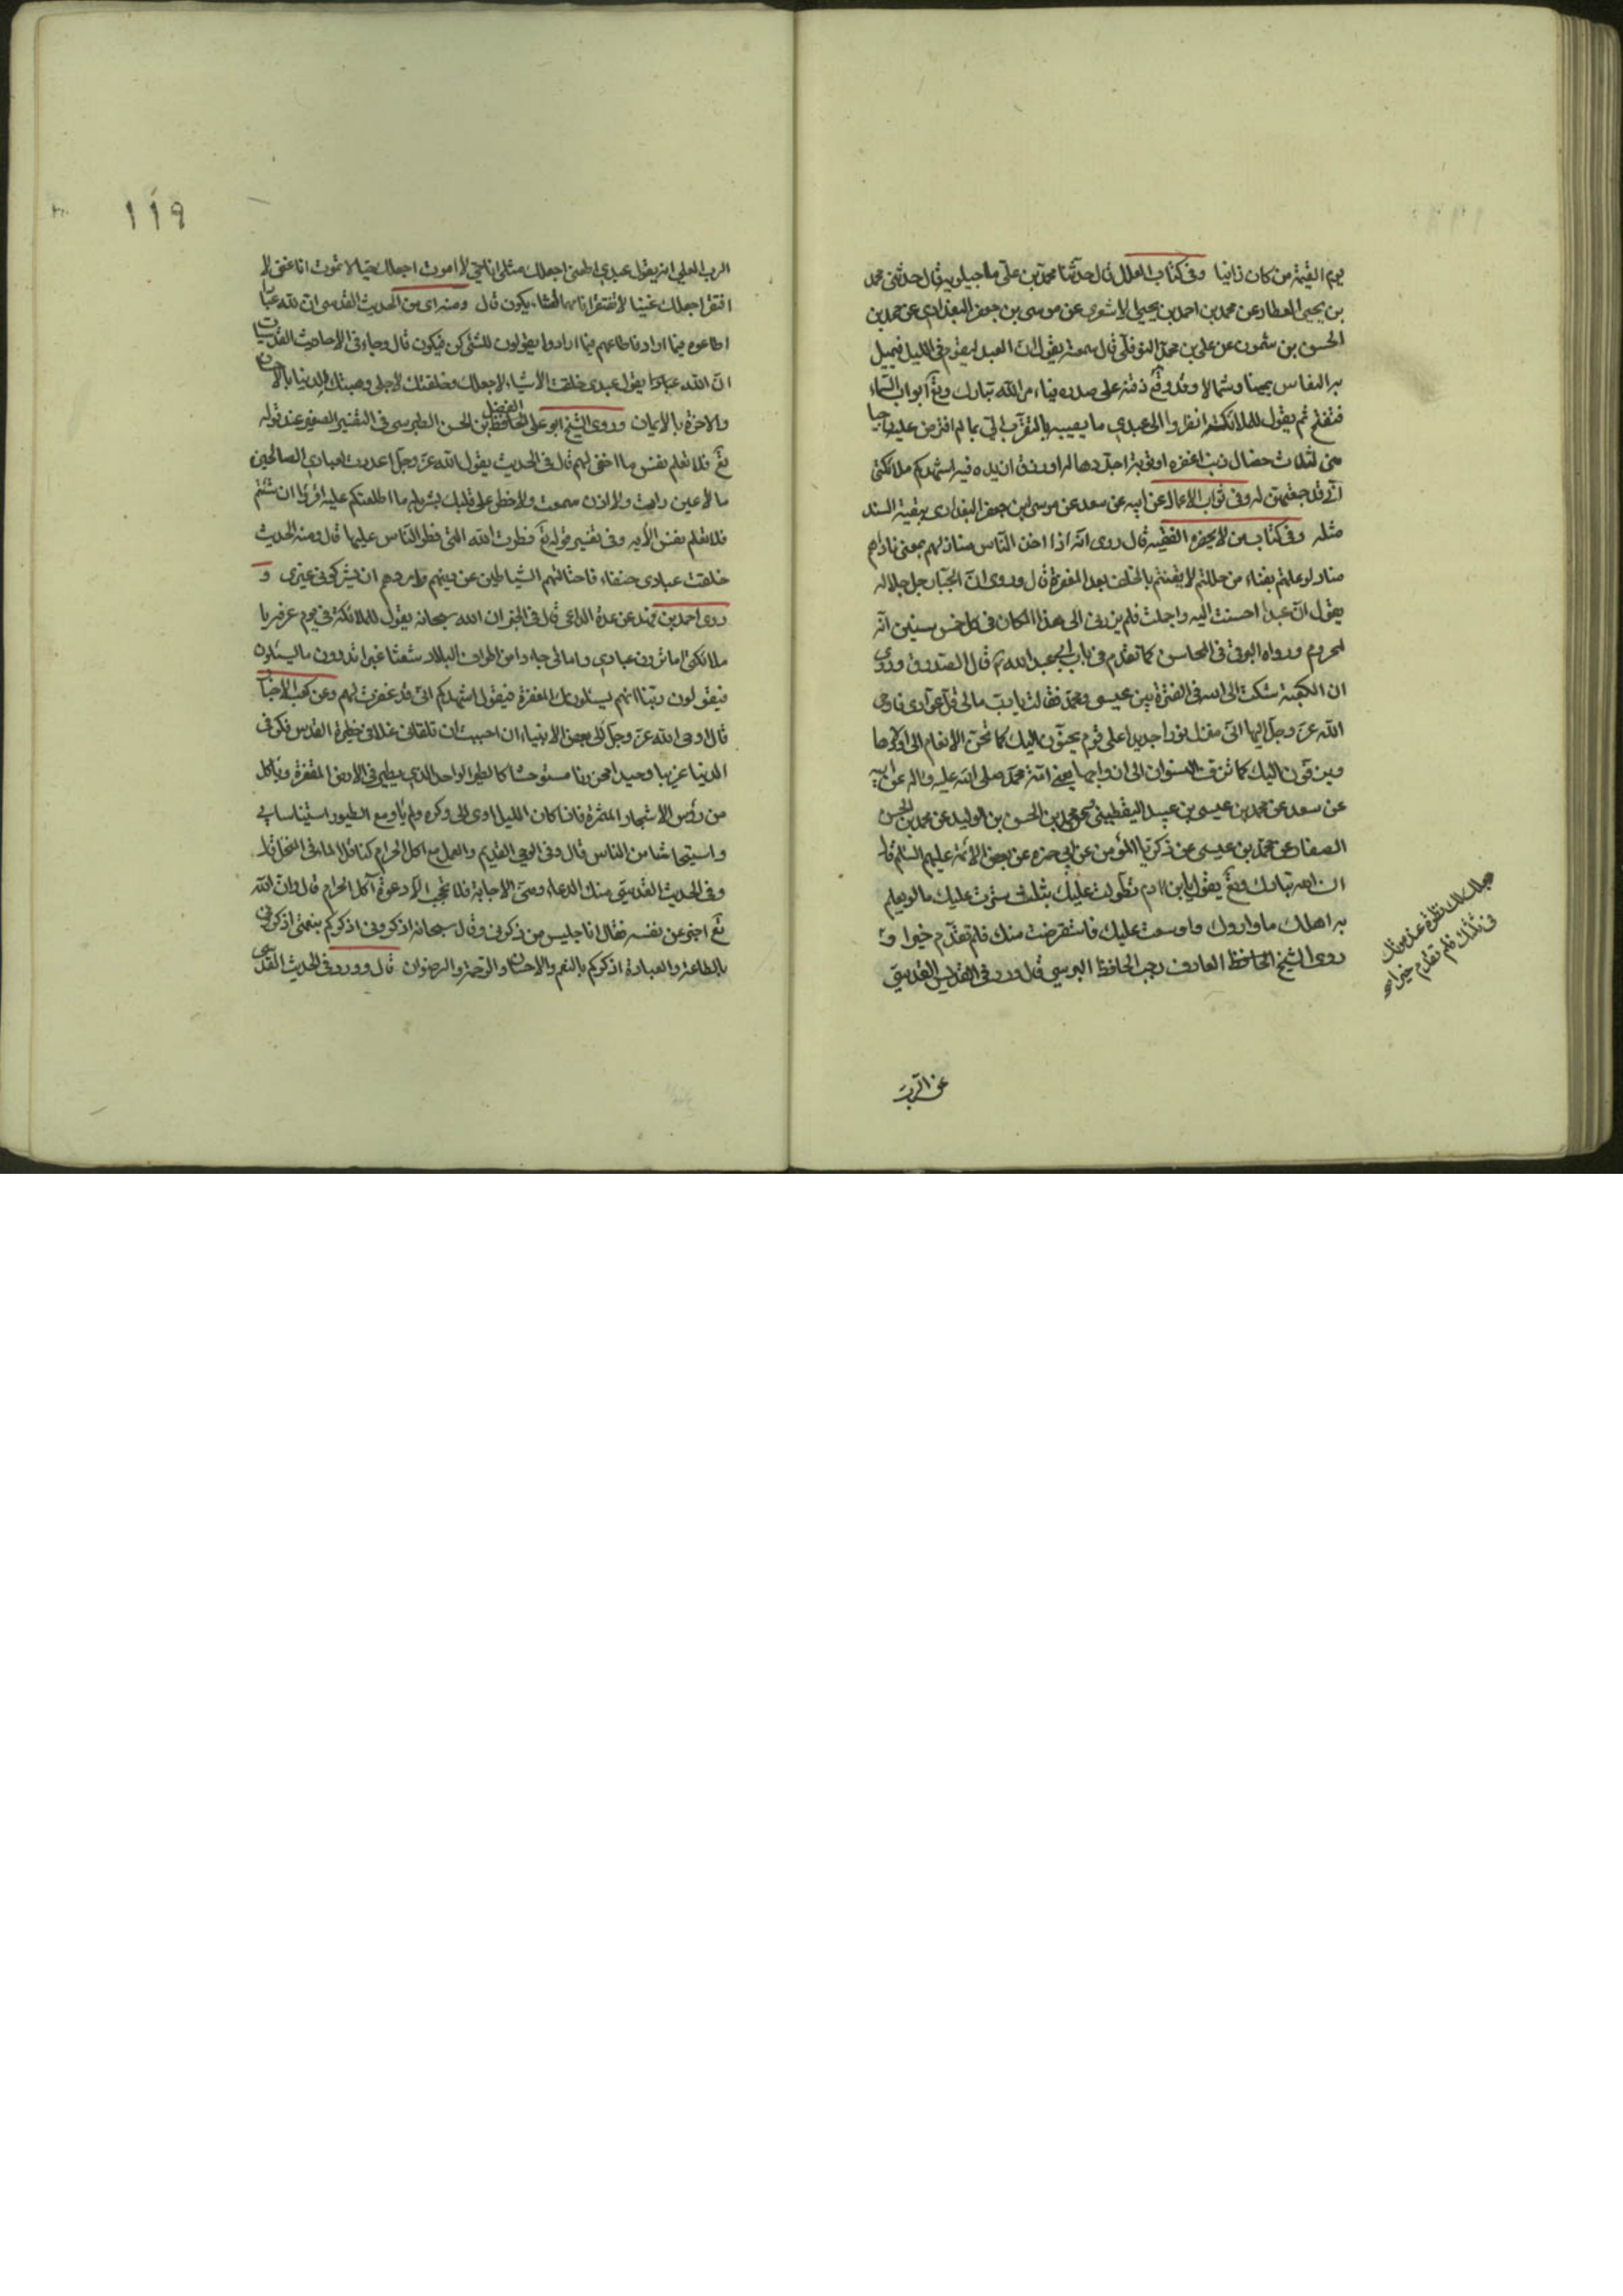 يوم القيمة من كان زانيا وفى كتاب العلل قال حدثنا محمد بن على ماجيلويه قال حدثنى محمد
بن يحيى العطار عن محمد بن احمد بن يحيى الاشعرى عن موسى بن جعفر البغدادى عن محمد بن
الحسن بن شمون عن على بن محمد النوفلى قال سمعته يقول ان العبد ليقوم فى الليل فيميل
به النعاس يمينا وشمالا وقد وقع ذقنه على صدره فيأمر الله تبارك وتع ابواب السماء
فتفتح ثم يقول للملائكته انظروا الى عبدى ما يصيبه بالتقرب الى بما لم افترض عليه راجيا
منى لثلاث خصال ذنب اغفره او توبة اجددها له او رزق ازيده فيه اشهدكم ملائكتى
انى قد جمعتهن له وفى ثواب الاعمال عن ابيه عن سعد عن موسى بن جعفر البغدادى ببقية السند
مثله وفى كتاب من لا يحضره الفقيه قال روى انه اذا اخذ الناس منازلهم بمنى ناداهم
مناد لو علمتم بفناء من حللتم لايقنتم بالخلف بعد المغفرة قال وروى ان الجبار جل جلاله
يقول ان عبدا احسنت اليه واجملت فلم يزرنى الى هذا المكان فى كل خمس سنين انه
لمحروم ورواه البرقى فى المحاسن كما تقدم فى باب ابى عبد الله ع قال الصدوق وروى
ان الكعبة شكت الى الله فى الفترة بين عيسى ومحمد فقالت يا رب مالى قل عوادى فاوحى
الله عز وجل اليها انى منزل نورا جديدا على قوم يحنون اليك كما تحن الانعام الى اولادها
ويزفون اليك كما تزف النسوان الى ازواجها يعنى امة محمد صلى الله عليه واله عن ابيه
عن سعد عن محمد بن عيسى بن عبيد اليقطينى ح عن محمد بن الحسن بن الوليد عن محمد بن الحسن
الصفار عن محمد بن عيسى عن زكريا المؤمن عن ابى حمزه عن بعض الائمة عليهم السلم قال
ان الله تبارك وتع يقول يابن ادم تطولت عليك بثلث سترت عليك ما لو يعلم
به اهلك ما واروك واوسعت عليك فاستقرضت منك فلم تقدم خيرا و
روى الشيخ الحافظ العارف رجب الحافظ البرسى قال ورد فى الحديث القدسى
وجعلت لك نظرة عند موتك
فى ثلثك فلم تقدم خيرا
عن الرب
119
الرب العلى انه يقول عبدى اطعنى اجعلك مثلى انا حى لا اموت اجعلك حيا لا تموت انا غنى لا
افتقر اجعلك غنيا لا تفتقر انا مهما اشاء يكون قال ومنه اى من الحديث القدسى ان لله عبادا
اطاعوه فيما اراد فاطاعهم فيما ارادوا يقولون للشئ كن فيكون قال وجاء فى الاحاديث القدسيات
ان الله عبادا يقول عبدى خلقت الاشياء لاجلك وخلقتك لاجلى وهبتك الدنيا بالاحسان
والاخرة بالايمان وروى الشيخ ابو على الفضل بن الحسن الطبرسى فى التفسير الصغير عند قوله
تع فلا تعلم نفس ما اخفى لهم قال فى الحديث يقول الله عز وجل اعددت لعبادى الصالحين
ما لا عين رأت ولا اذن سمعت ولا خطر على قلب بشر بله ما اطلعتكم عليه اقرؤا ان شئتم
فلا تعلم نفس الآيه وفى تفسير قوله تع فطرت الله التى فطر الناس عليها قال ومنه الحديث
خلقت عبادى حنفاء فاحتالتهم الشياطين عن دينهم وامروهم ان يشركوا بى غيرى و
روى احمد بن فهد عن عدة الداعى قال فى الخبر ان الله سبحانه يقول للملائكة فى يوم عرفه يا
ملائكتى اما ترون عبادى وامائى جاءوا من اطراف البلاد شعثا غبرا اتدرون ما يسئلون
فيقولون ربنا انهم يسئلونك المغفرة فيقول اشهدكم انى قد غفرت لهم وعن كعب الاحبار
قال اوحى الله عز وجل الى بعض الانبياء ان احببت ان تلقانى غدا فى حظيرة القدس فكن فى
الدنيا غريبا وحيدا محزونا مستوحشا كالطير الواحد الذى يطير فى الارض المقفرة وياكل
من رؤس الاشجار المثمرة فاذا كان الليل اوى الى وكره ولم يأو مع الطيور استيناسا بى
واستيحاشا من الناس قال وفى الوحى القديم والعمل مع اكل الحرام كناقل الماء فى المنخل قال
وفى الحديث القدسى منك الدعاء ومنى الاجابة فلا تحجب الا دعوة آكل الحرام قال وان الله
تع اخبر عن نفسه فقال انا جليس من ذكرنى وقال سبحانه اذكرونى اذكركم بنعمتى اذكرونى
بالطاعة والعبادة اذكركم بالنعم والاحسان والرحمة والرضوان قال وورد فى الحديث القدسى